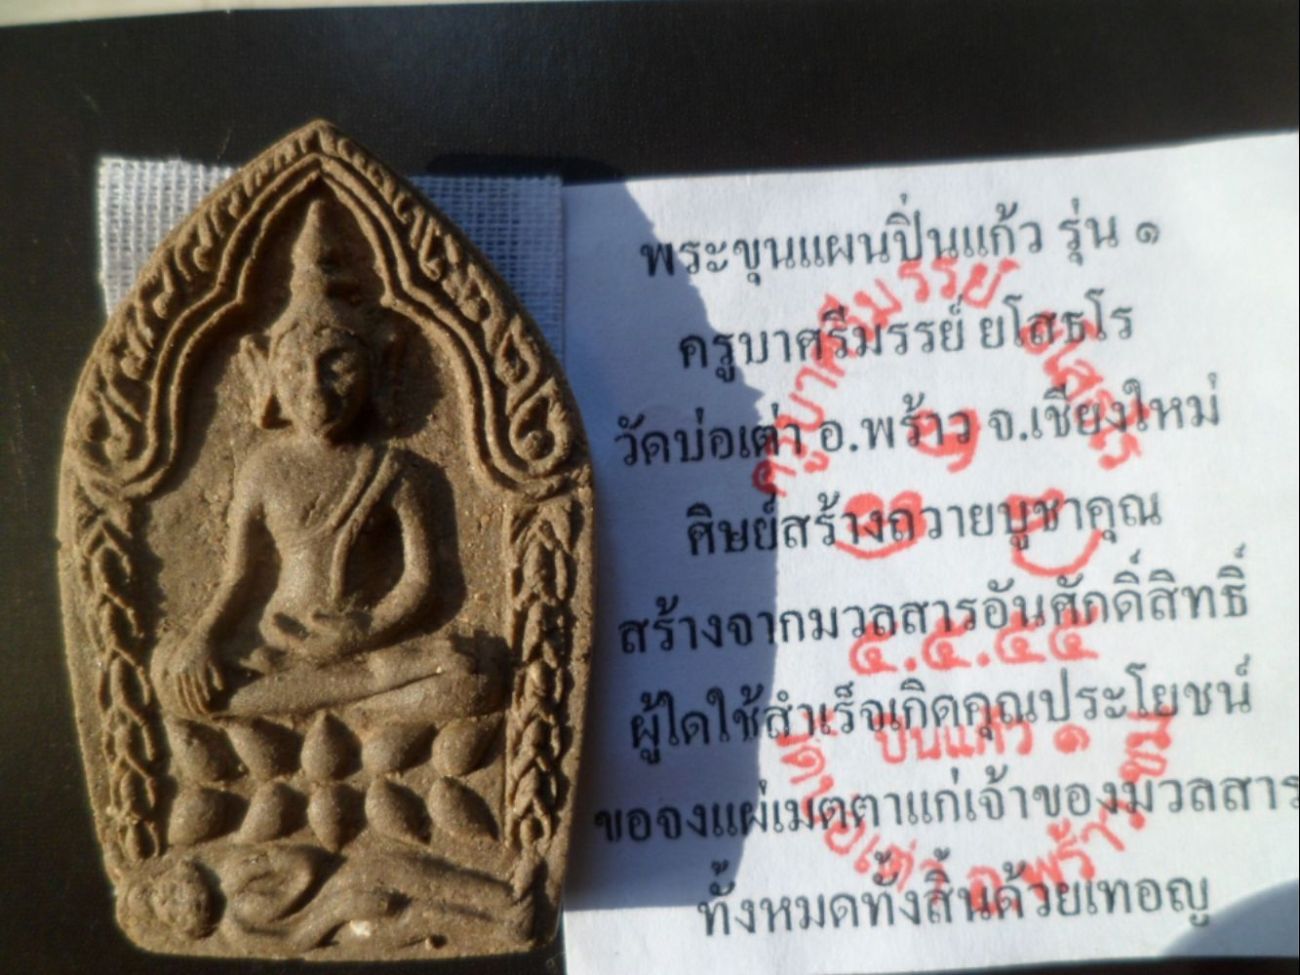 พระขุนแผนปิ่นแก้ว รุ่น ๑
ครูบาศรีมรรย์ ยโสธโร
วัดบ่อเต่า อ.พร้าว จ.เชียงใหม่
ศิษย์สร้างถวายบูชาคุณ
สร้างจากมวลสารอันศักดิ์สิทธิ์
ผู้ใดใช้สำเร็จเกิดคุณประโยชน์
ขอจงแผ่เมตตาแก่เจ้าของมวลสาร
ทั้งหมดทั้งสิ้นด้วยเทอญ
ครูบาศรีมรรย์ ยโสธโร
๕.๕.๕๕
ปิ่นแก้ว ๑